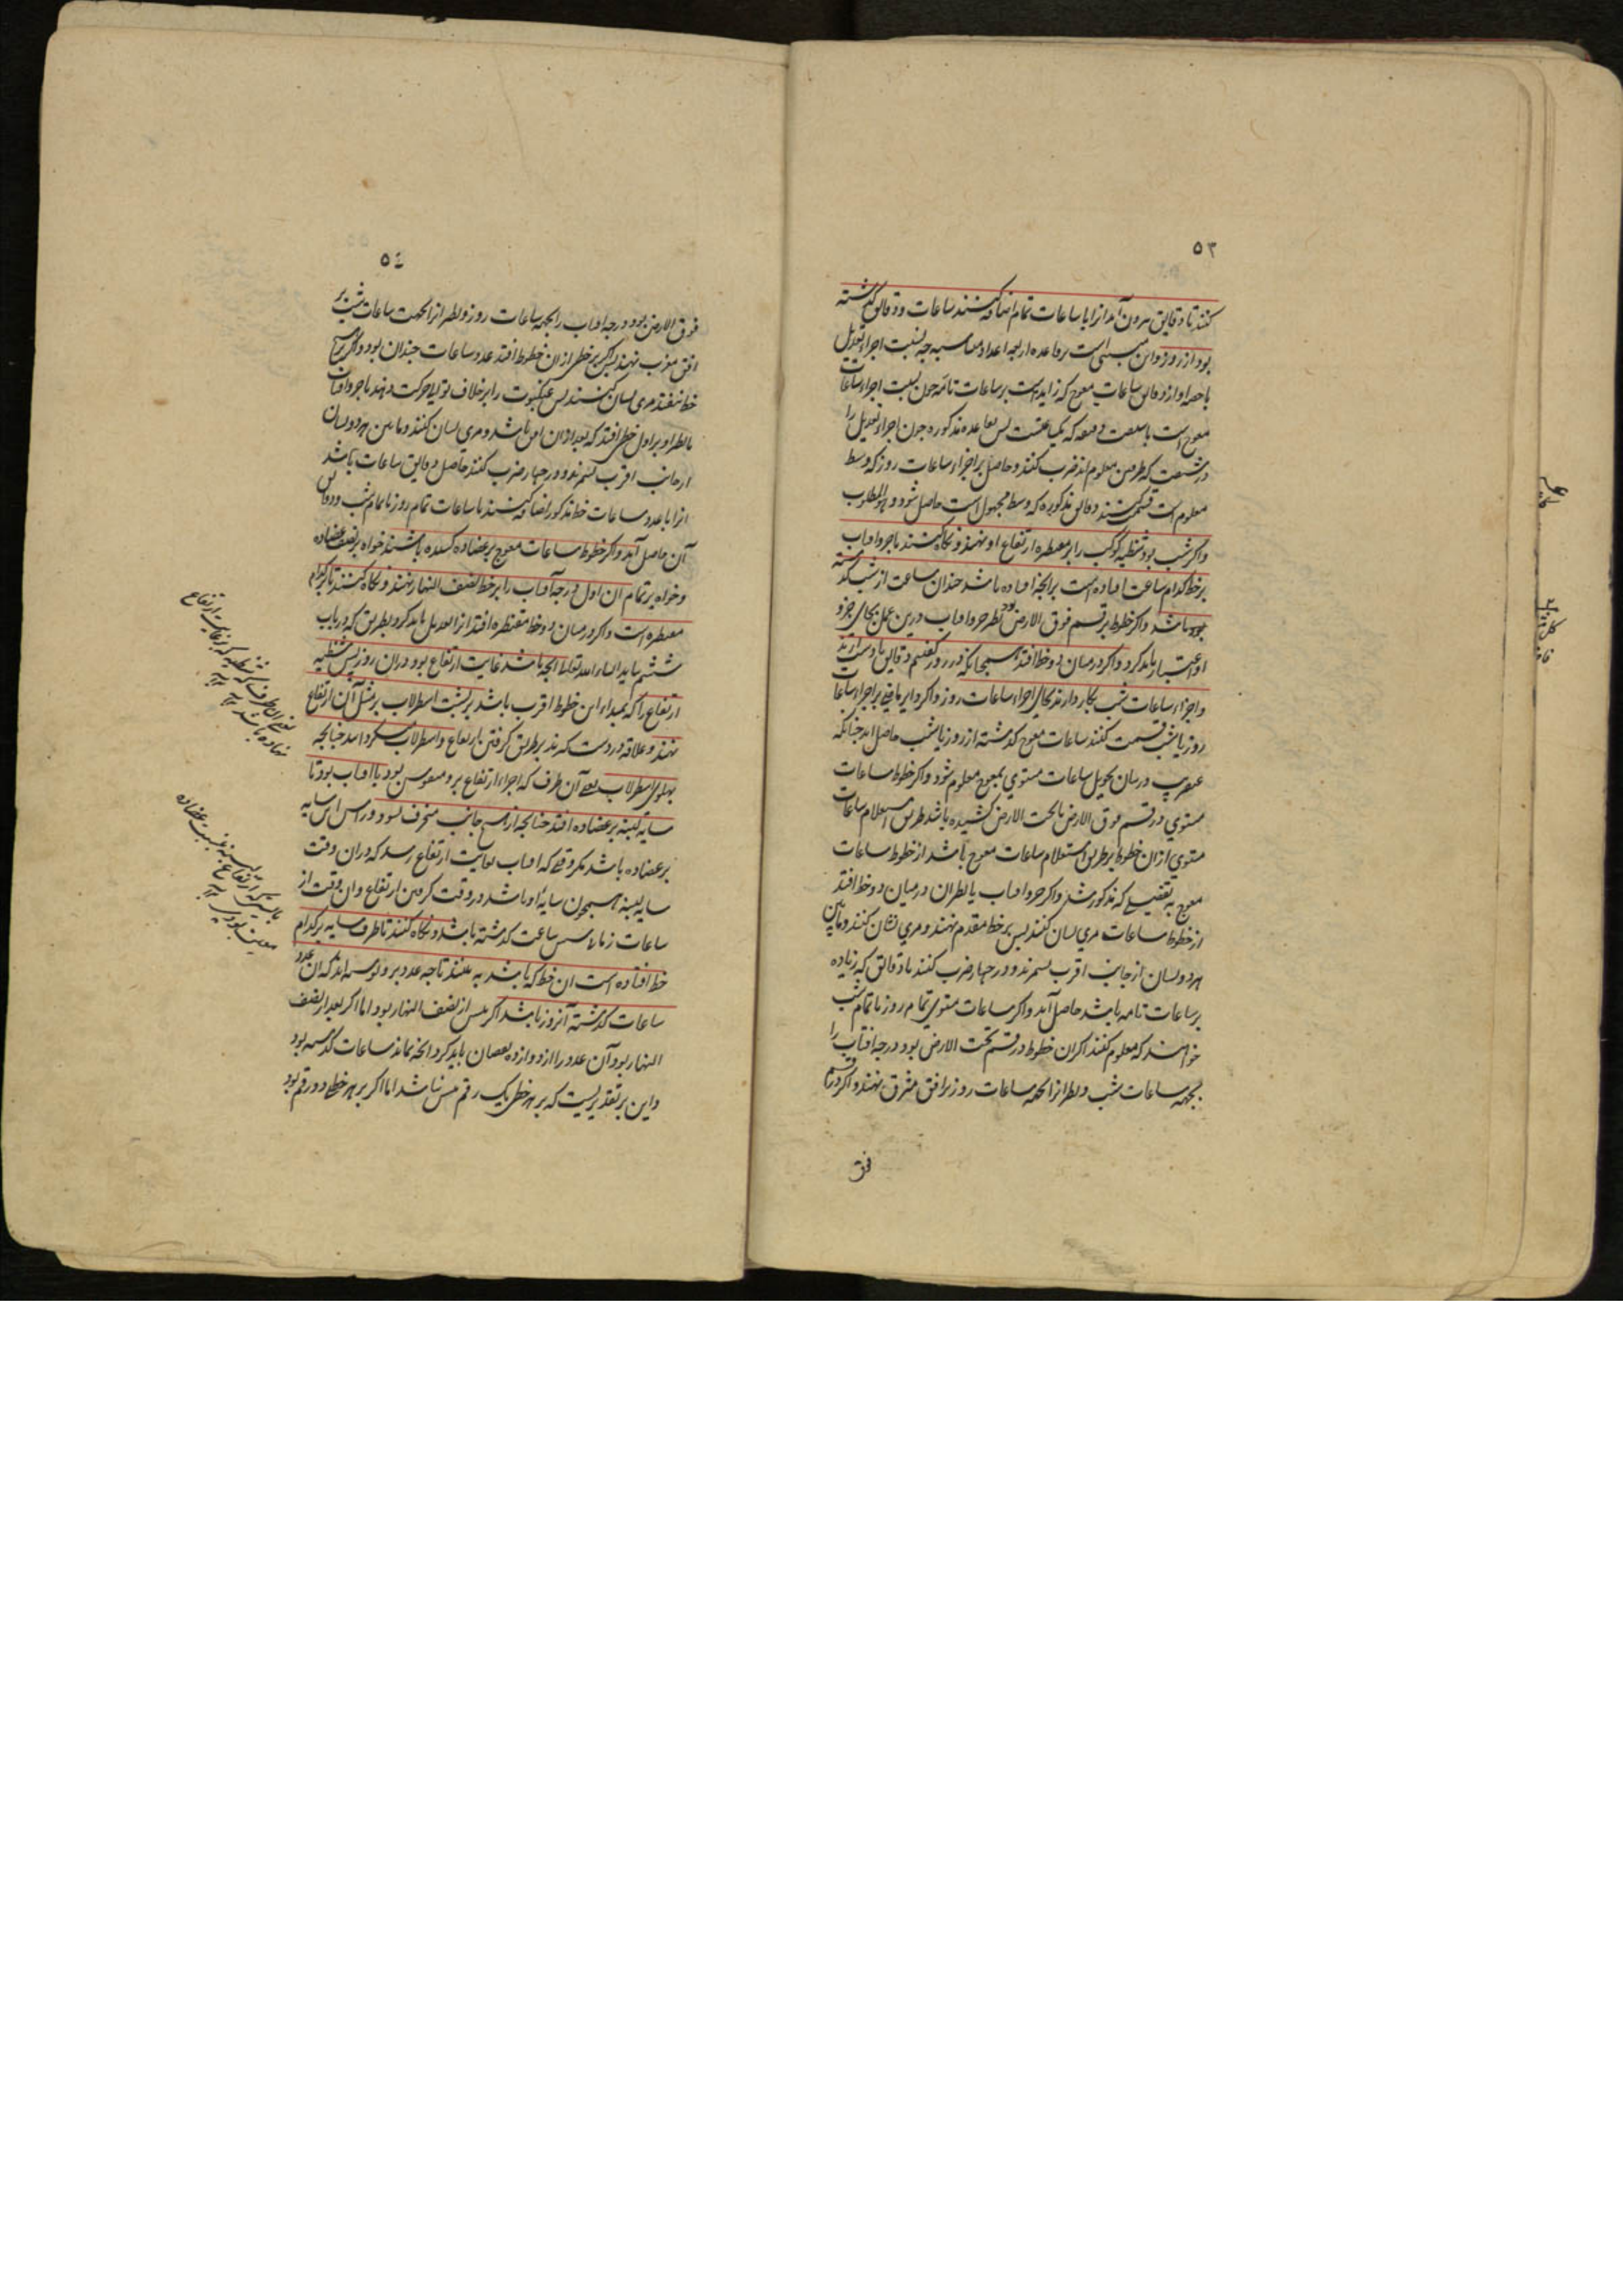 ٥٣
کنند تا دقایق بیرون آید آنرا با ساعات تمام اضافه کنند ساعات و دقایق گذشته
بود از روز و این مبنی است بر قاعده اربعه اعداد متناسبه چه نسبت اجراء تعدیل
با حصه او از دقایق ساعات معوج که زاید است بر ساعات تامه چون نسبت اجراء ساعات
معوج است با شصت دقیقه که یکساعتست پس بقاعده مذکوره چون اجراء تعدیل را
در شصت که طرفین معلوم اند ضرب کنند و حاصل بر اجزاء ساعات روز که وسط
معلوم است قسمت کنند دقایق مذکوره که وسط مجهول است حاصل شود و هو المطلوب
و اگر شب بود شظیه کوکب را بر مقنطره ارتفاع او نهند و نگاه کنند تا جزو افتاب
بر خط کدام ساعت افتاده است بر انچه افتاده باشد چندان ساعت از شب گذشته
بود باشد و اگر خطوط بر قسم فوق الارض بود نظیر جزو افتاب درین عمل بجای جزو
او اعتبار باید کرد و اگر در میان دو خط افتد همچنانکه در روز گفتیم دقایق بدست آرند
و اجزاء ساعات شب بکار دارند بجای اجزاء ساعات روز و اگر دایر ماضی بر اجزاء ساعات
روز یا شب قسمت کنند ساعات معوج گذشته از روز یا شب حاصل اید چنانکه
عنقریب در بیان تحویل ساعات مستوی بمعوج معلوم شود و اگر خطوط ساعات
مستوی در قسم فوق الارض یا تحت الارض کشیده باشد طریق استعلام ساعات
مستوی از ان خطوط بر طریق استعلام ساعات معوج باشد از خطوط ساعات
معوج به تفصیلی که مذکور شد و اگر جزو افتاب یا نظیر ان در میان دو خط افتد
از خطوط ساعات مری نشان کنند پس بر خط مقدم نهند و مری نشان کنند و مابین
هر دو نشان از جانب اقرب بشمرند و در چهار ضرب کنند تا دقایق که زیاده
بر ساعات تامه باشد حاصل آید و اگر ساعات مستوی تمام روز یا تمام شب
خواهند که معلوم کنند اگر ان خطوط در قسم تحت الارض بود درجه افتاب را
بجهه ساعات شب و نظیر انرا بجهه ساعات روز بر افق مشرق نهند و اگر در قسم
فوق
٥٤
فوق الارض بود درجه افتاب را بجهه ساعات روز و نظیر انرا بجهت ساعات شب بر
افق مغرب نهند پس اگر بر خطی از ان خطوط افتد عدد ساعات چندان بود و اگر بر هیچ
خط نیفتد مری نشان کنند پس عنکبوت را بر خلاف توالی حرکت دهند تا جزو افتاب
یا نظیر او بر اول خطی افتد که بعد از ان افق باشد و مری نشان کنند و مابین هر دو نشان
از جانب اقرب بشمرند و در چهار ضرب کنند حاصل دقایق ساعات باشد
انرا با عدد ساعات خط مذکور اضافه کنند تا ساعات تمام روز یا تمام شب و دقایق
آن حاصل آید و اگر خطوط ساعات معوج بر عضاده کشیده باشند خواه بر نصف عضاده
و خواه بر تمام ان اول درجه آفتاب را بر خط نصف النهار نهند و نگاه کنند تا بر کدام
مقنطره است و اگر در میان دو خط مقنطره افتد انرا تعدیل باید کرد بطریق که در باب
ششم بیاید انشاء الله تعالی انچه باشد غایت ارتفاع بود در ان روز پس شظیه
ارتفاع را که بمبداء این خطوط اقرب باشد بر پشت اسطرلاب بر مثل آن ارتفاع
نهند و علاقه در دست گیرند بر طریق گرفتن ارتفاع و اسطرلاب میگردانند چنانچه
پهلوی اسطرلاب یعنی آن طرف که اجزاء ارتفاع برو منقوش بود با افتاب بود تا
سایه لبنه بر عضاده افتد چنانچه از هیچ جانب منحرف نبود و راس این سایه
بر عضاده باشد مگر وقتی که افتاب بغایت ارتفاع رسد که در ان وقت
سایه لبنه همچون سایه او باشد در وقت گرفتن ارتفاع و ان وقت از
ساعات زمانی شش ساعت گذشته باشد و نگاه کنند تا طرف سایه بر کدام
خط افتاده است ان خط که باشد به بینند تا چه عدد برو نوشته اند که ان عدد
ساعات گذشته آنروز باشد اگر پیش از نصف النهار بود اما اگر بعد از نصف
النهار بود آن عدد را از دوازده نقصان باید کرد انچه بماند ساعات گذشته بود
و این بر تقدیریست که بر هر خطی یک رقم بیش نباشد اما اگر بر هر خطی دو رقم بود